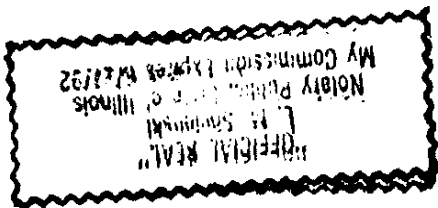 "OFFICIAL SEAL"
L. M.
Notary Public, State of Illinois
My Commission Expires